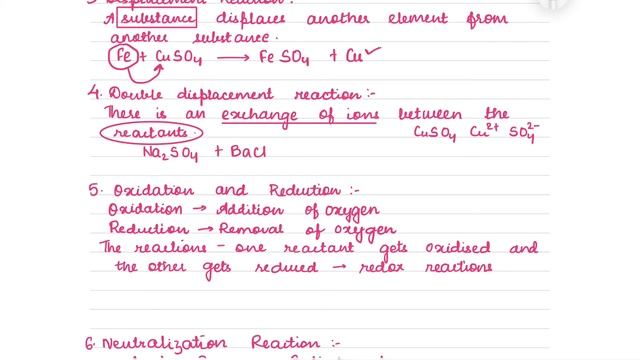 3. Displacement Reaction :-
A substance displaces another element from
another substance.
Fe + CuSO4 → FeSO4 + Cu ✓
4. Double displacement reaction :-
There is an exchange of ions between the
reactants. CuSO4 Cu²⁺ SO4²⁻
Na2SO4 + BaCl
5. Oxidation and Redution :-
Oxidation → Addition of oxygen
Reduction → Removal of oxygen
The reactions - one reactant gets oxidised and
the other gets reduced → redox reactions
6. Neutralization Reaction :-